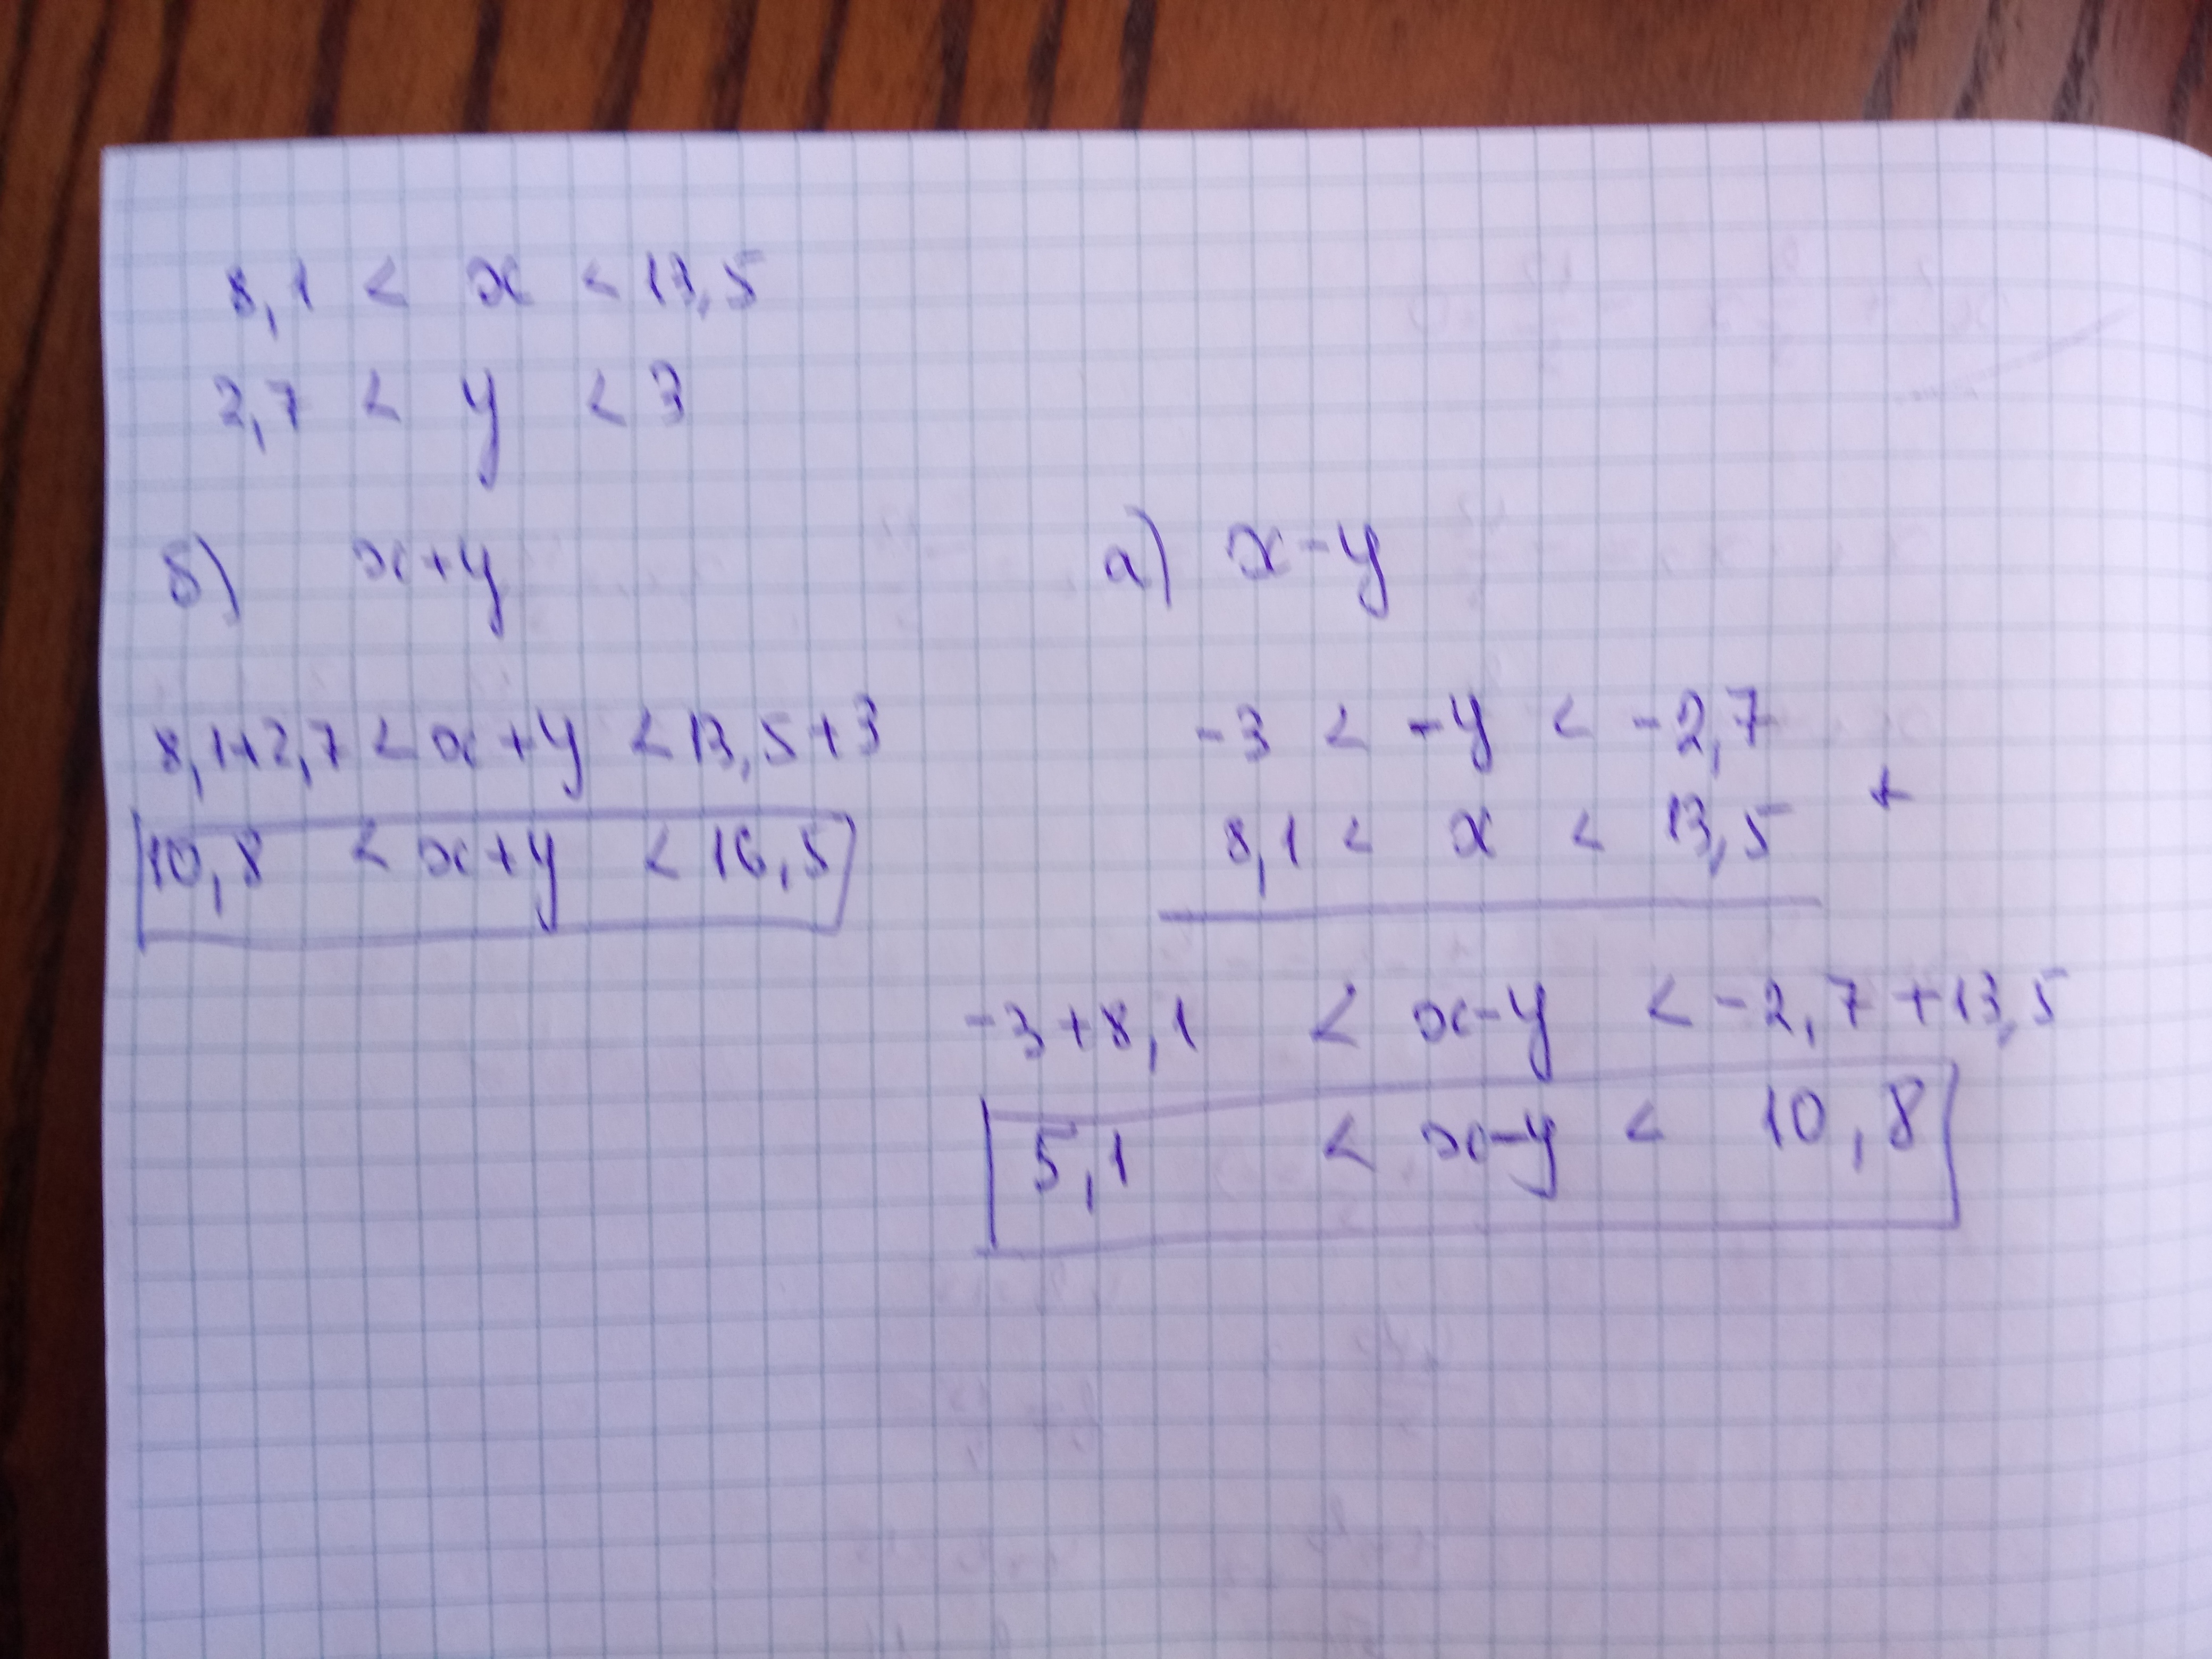 8,1 < x < 13,5
2,7 < y < 3
б) x+y
8,1+2,7 < x+y < 13,5+3
10,8 < x+y < 16,5
а) x-y
-3 < -y < -2,7
+
8,1 < x < 13,5
-3+8,1 < x-y < -2,7+13,5
5,1 < x-y < 10,8